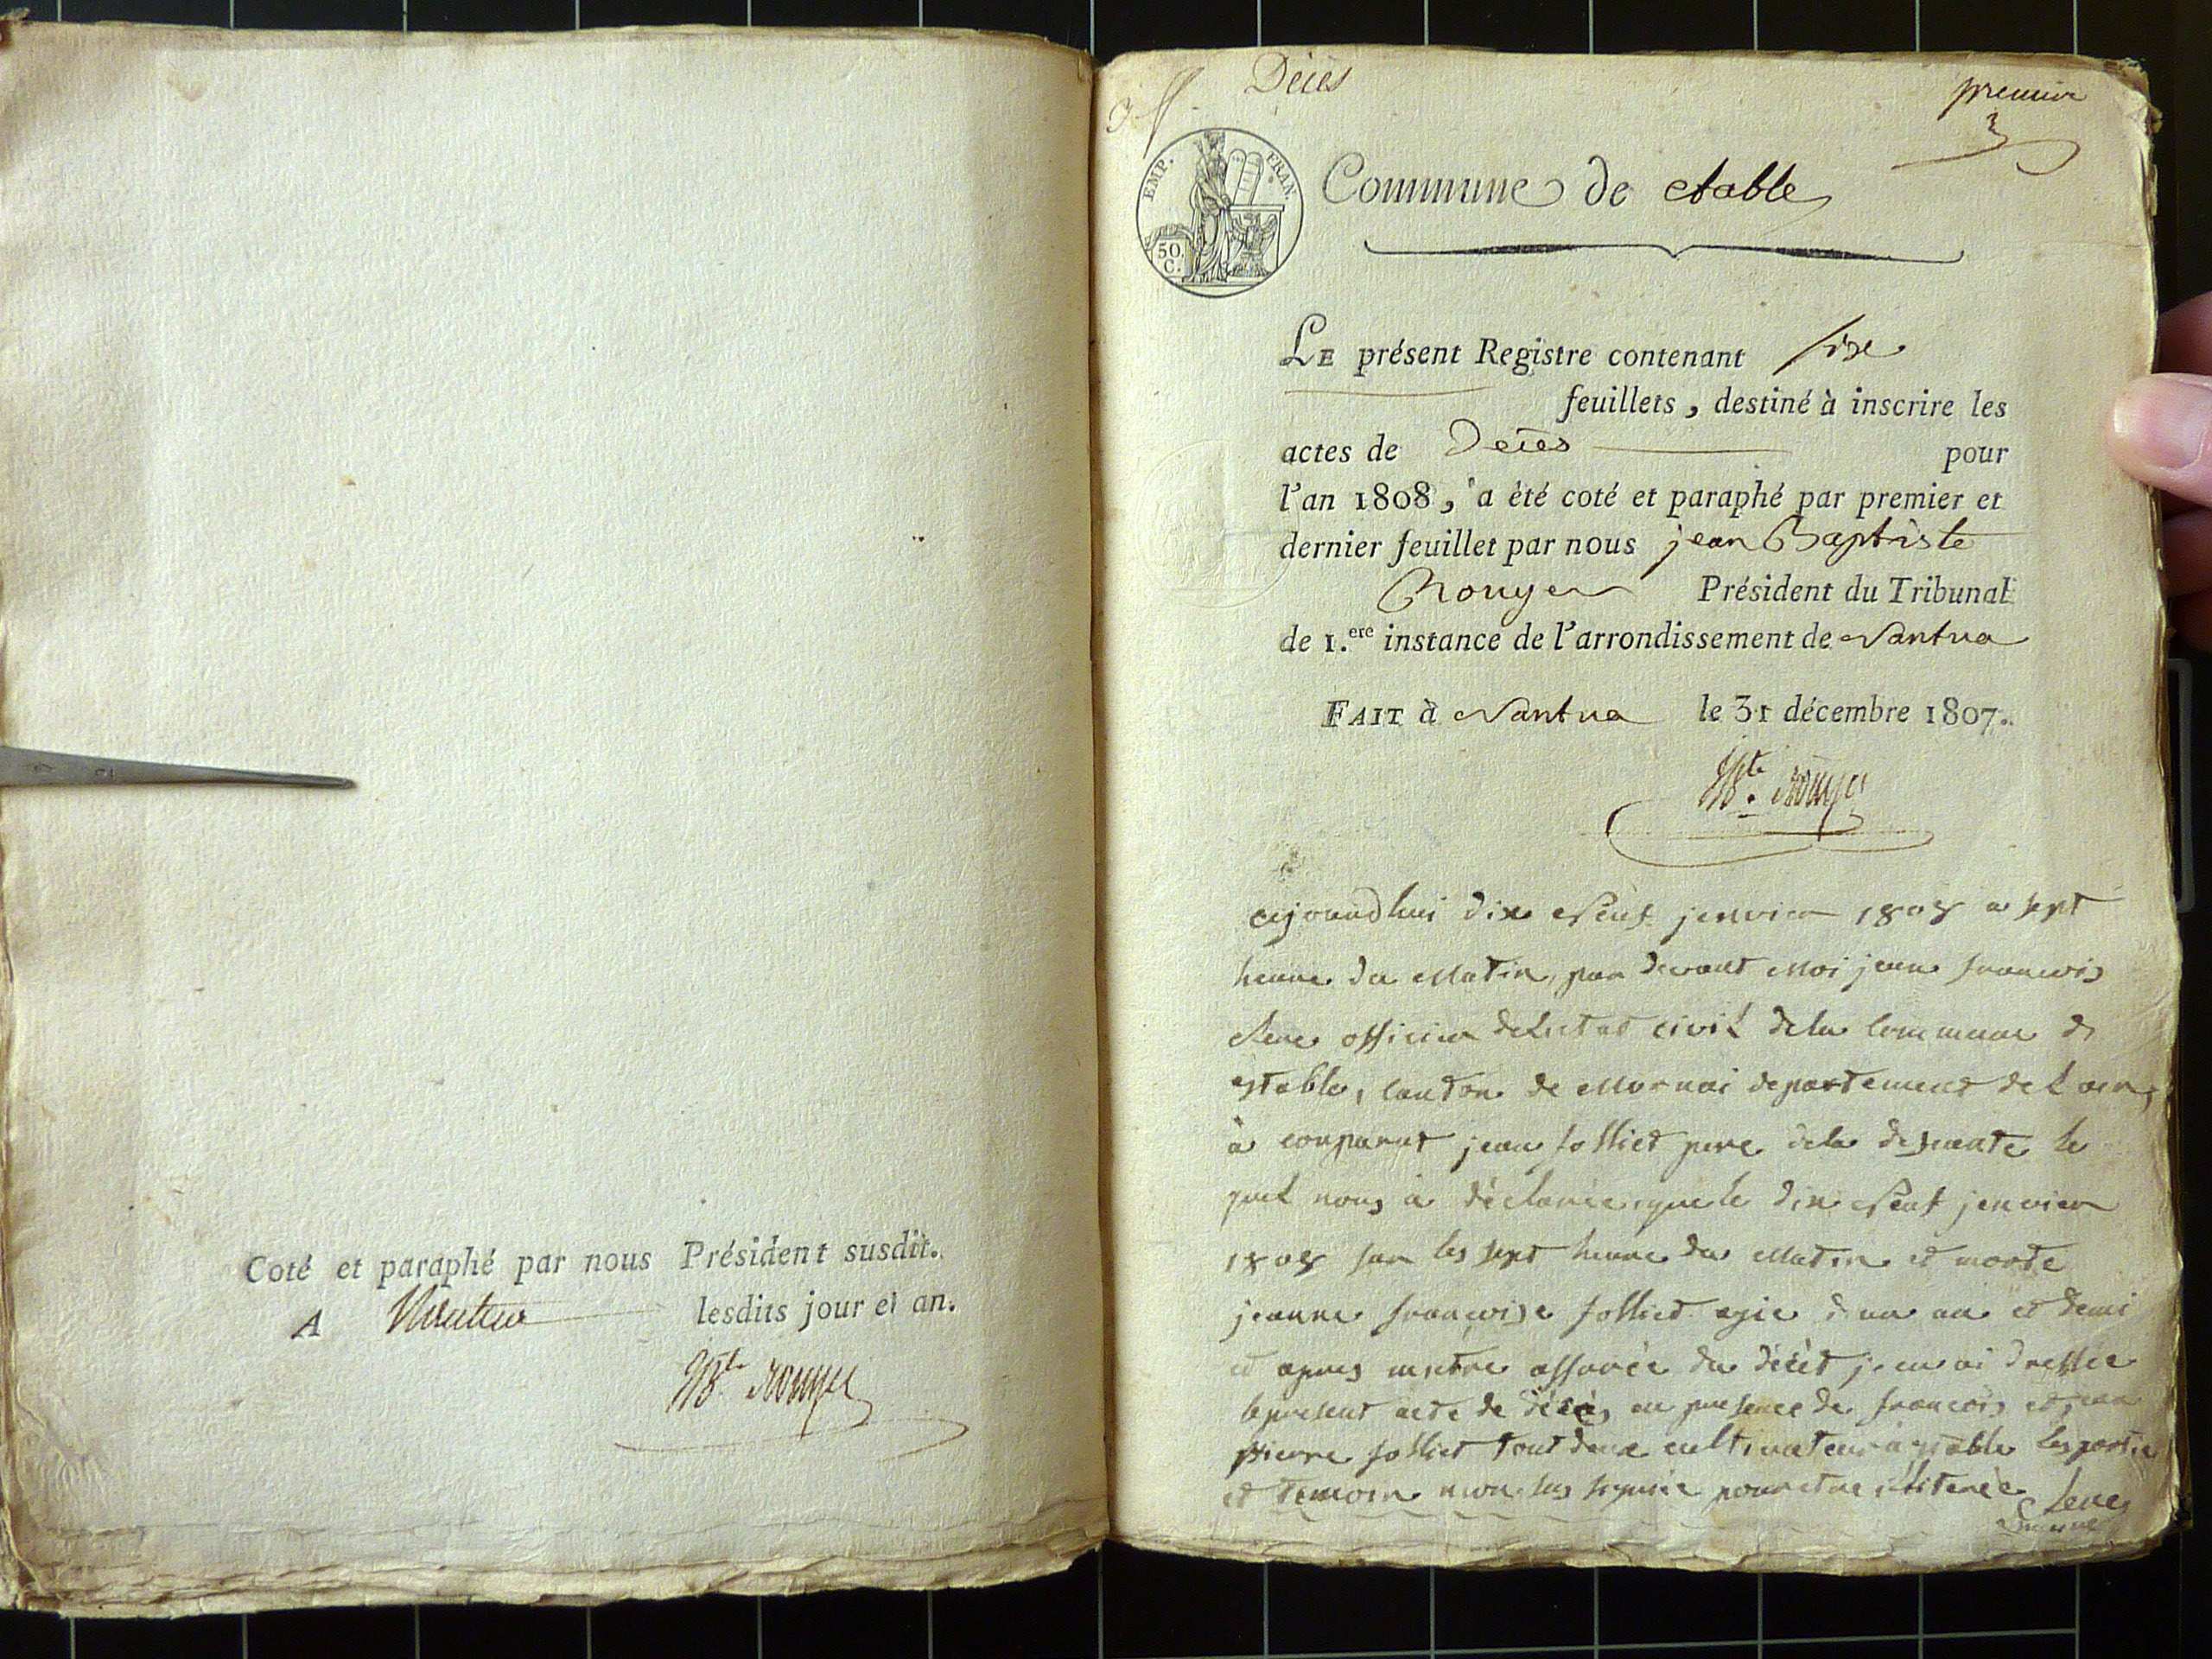 Coté et paraphé par nous Président susdit.
A Nantua lesdits jour et an.
JBte rouyer
Décès
premier
EMP. FRAN.
50 C.
Commune de etable
LE présent Registre contenant six
feuillets, destiné à inscrire les
actes de Décès pour
l'an 1808, a été coté et paraphé par premier et
dernier feuillet par nous jean Baptiste
Rouyer Président du Tribunal
de 1.ere instance de l'arrondissement de Nantua
FAIT à Nantua le 31 décembre 1807.
JBte rouyer
aujourdhui dix neuf janvier 1808 a sept
heure du Matin, par devant Moi jean francois
officier deletat civil dela Commune de
estable, canton de Mornai departement de l ain,
à comparut jean folliet pere dela defuente le
quel nous à déclarée que le dix neuf janvier
1808 sur les sept heure du Matin et morte
jeanne francoise folliet agie d un an et demi
et apres metre assurée du décèt j en ai dressee
le present acte de décès en presence de francois et jean
pierre folliet tout deux cultivateur a estable les partie
et temoin non sus signée pour etre illiterée